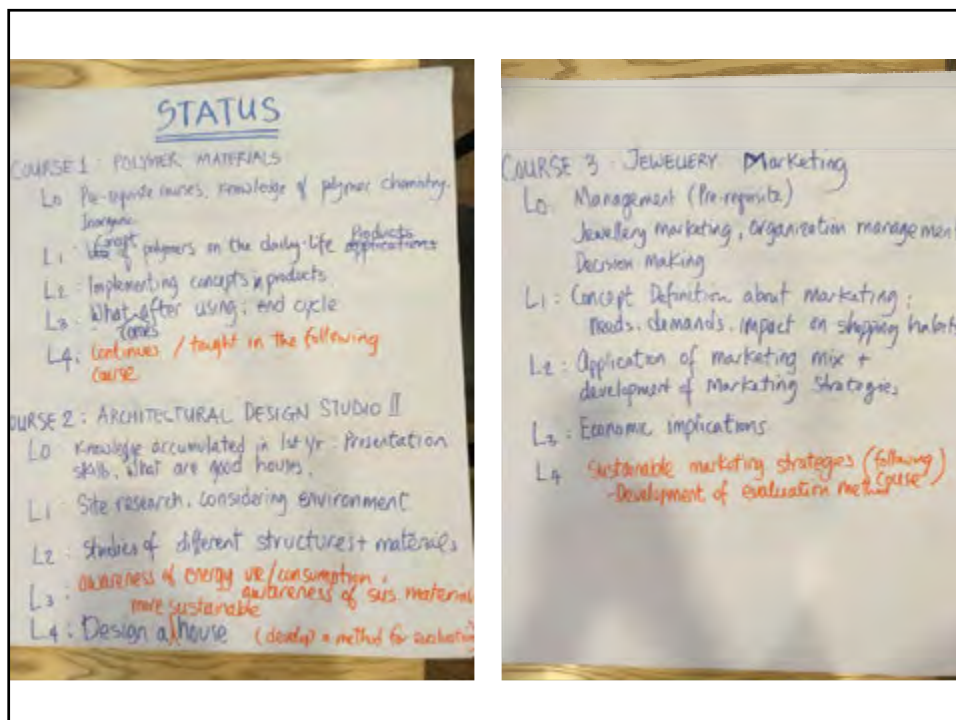 STATUS
COURSE 1 : POLYMER MATERIALS
L0 Pre-requisite courses. Knowledge of polymer chemistry.
Inorganic
Concept Products
L1 polymers on the daily-life applications
L2 : Implementing concepts in products
L3 : What after using : end cycle
comes
L4 : Continues / taught in the following
course
OURSE 2 : ARCHITECTURAL DESIGN STUDIO II
L0 Knowledge accumulated in 1st Yr : Presentation
skills. What are good houses.
L1 Site research, considering environment
L2 : Studies of different structures + materials
L3 : awareness of energy use/consumption,
awareness of sus. material
more sustainable
L4 : Design a house (develop a method for evaluating
COURSE 3 : JEWELLERY Marketing
L0 Management (Pre-requisite)
Jewellery marketing, organization management
Decision making
L1 : Concept Definition about marketing ;
needs, demands, impact on shopping habits
L2 : Application of marketing mix +
development of Marketing Strategies
L3 : Economic implications
L4 Sustainable marketing strategies (following
course)
-Development of evaluation method